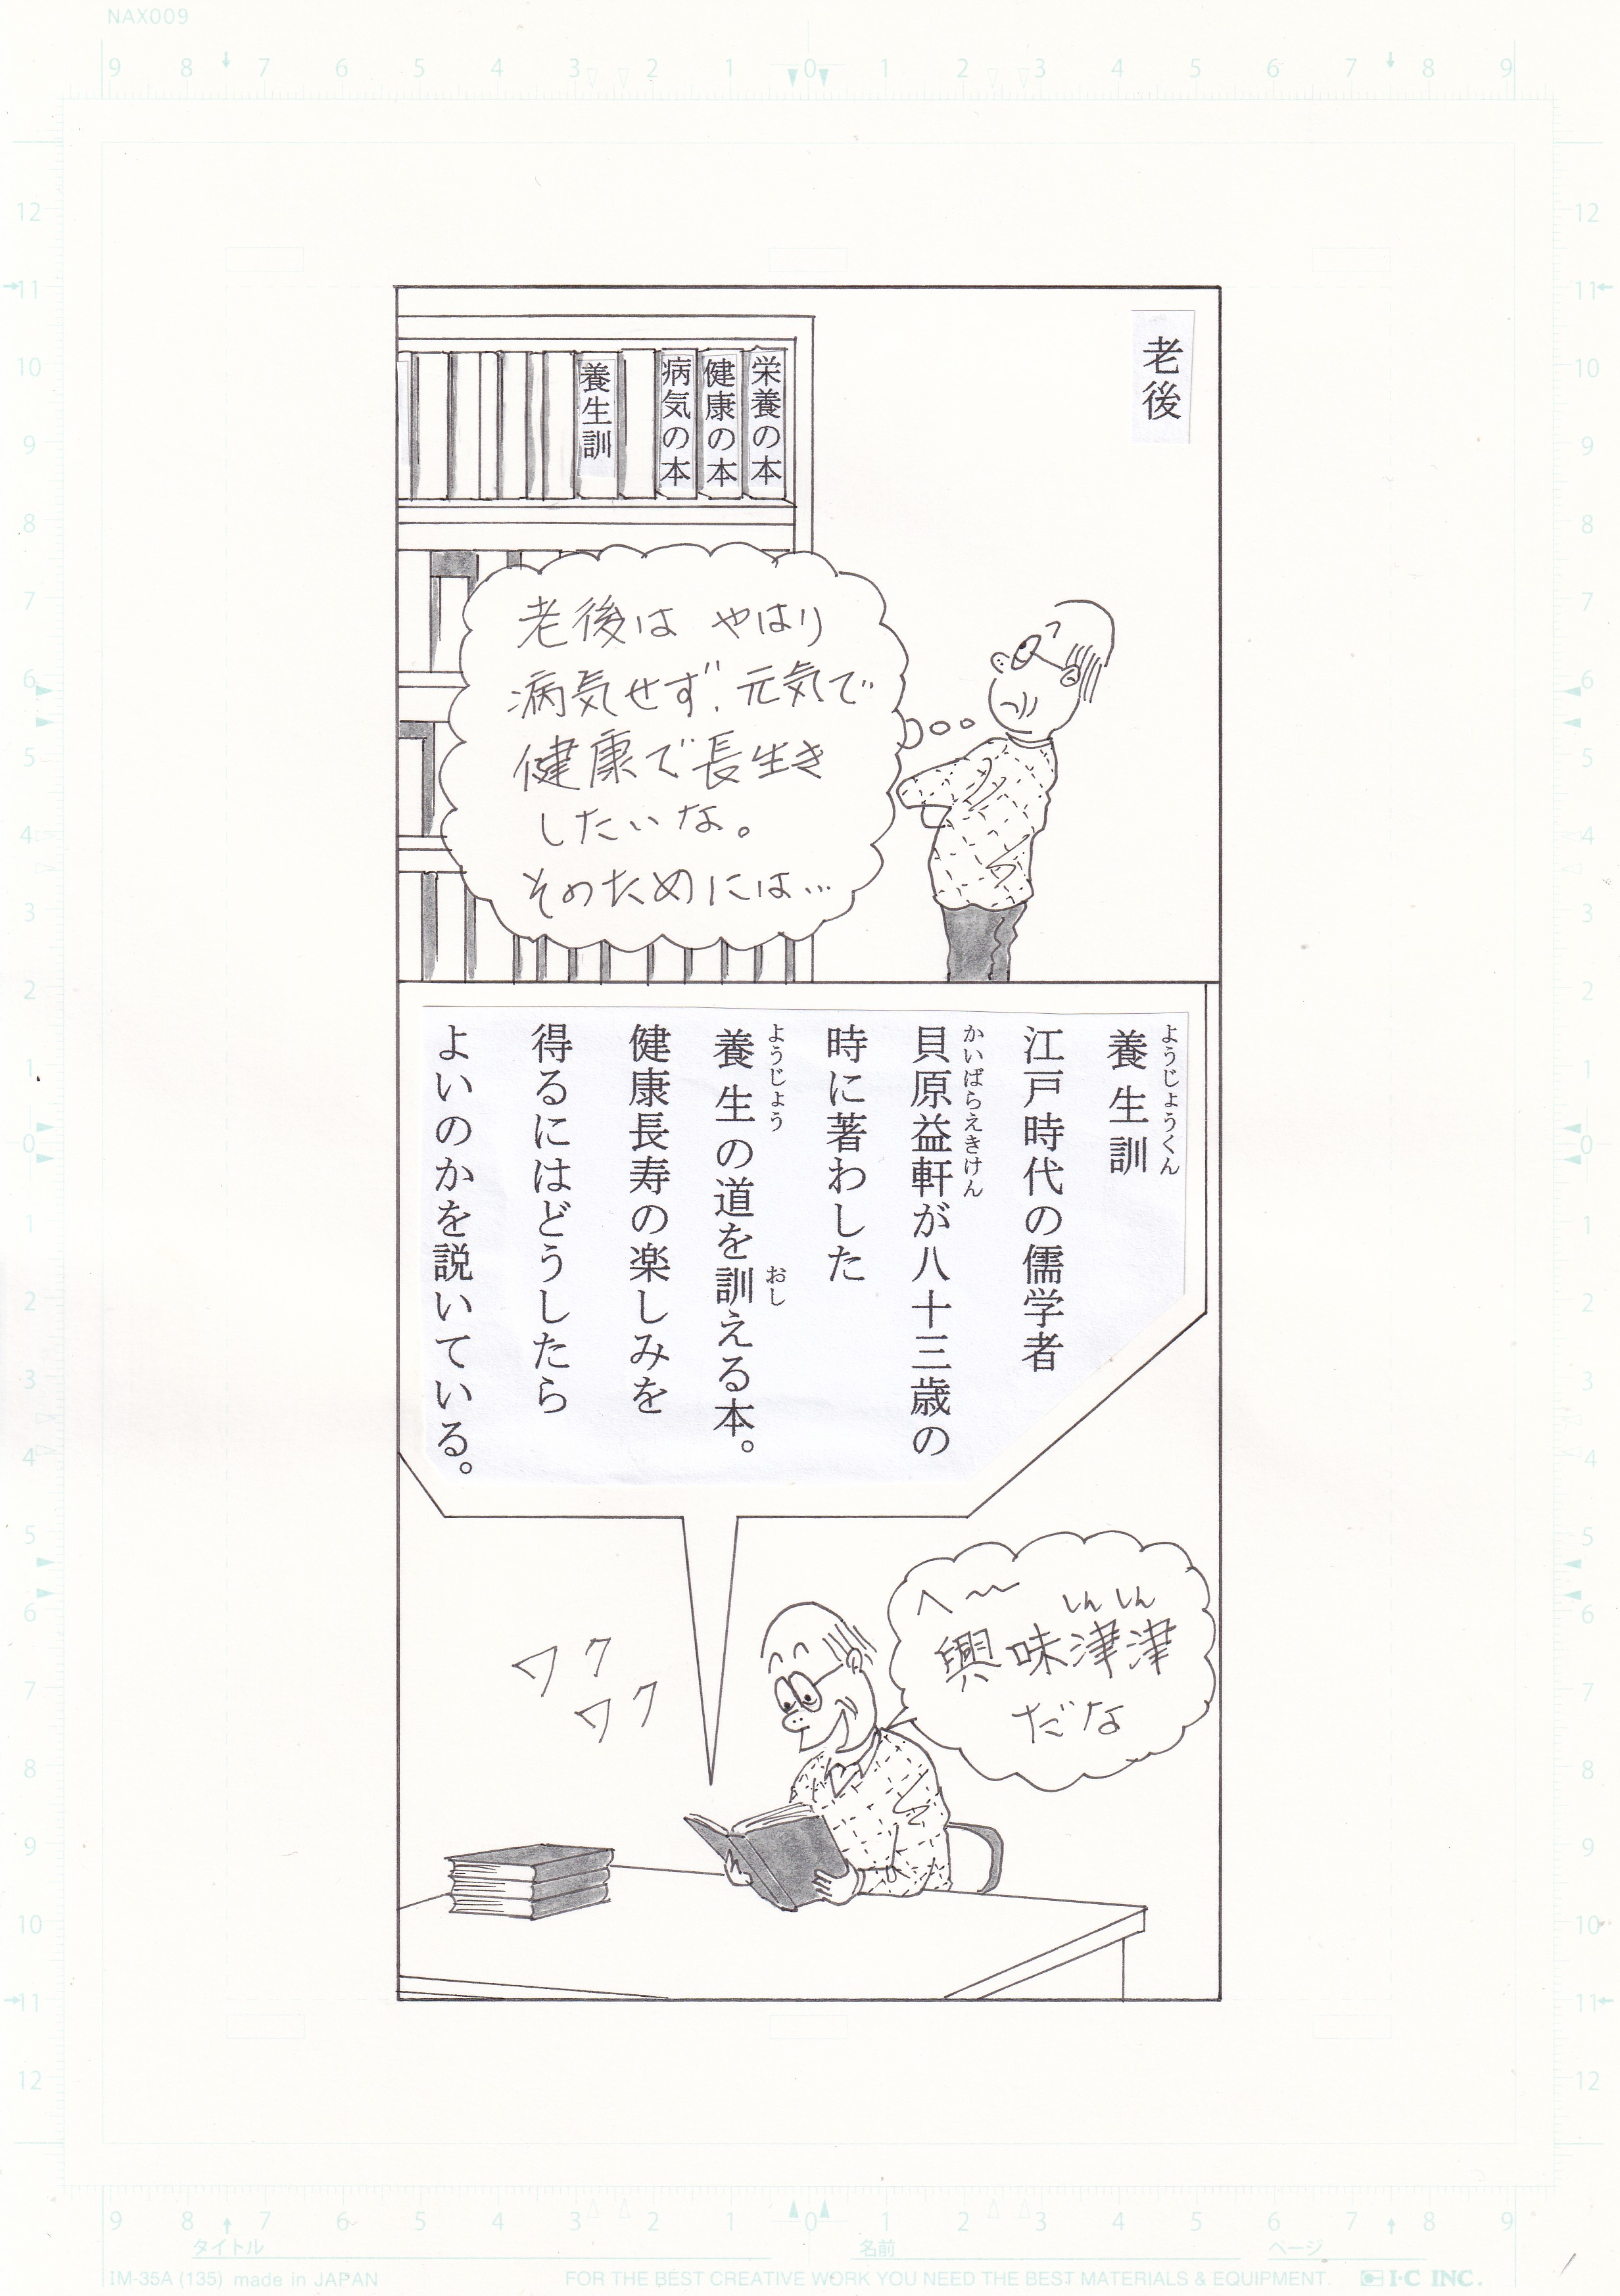 NAX009
9 8 7 6 5 4 3 2 1 0 1 2 3 4 5 6 7 8 9
老後
栄養の本
健康の本
病気の本
養生訓
老後は やはり
病気せず、元気で
健康で長生き
したいな。
そのためには…
ようじょうくん
養生訓
江戸時代の儒学者
かいばらえきけん
貝原益軒が八十三歳の
時に著わした
ようじょう おし
養生の道を訓える本。
健康長寿の楽しみを
得るにはどうしたら
よいのかを説いている。
へ〜
しんしん
興味津津
だな
ワク
ワク
12 11 10 9 8 7 6 5 4 3 2 1 0 1 2 3 4 5 6 7 8 9 10 11 12
12 11 10 9 8 7 6 5 4 3 2 1 0 1 2 3 4 5 6 7 8 9 10 11 12
9 8 7 6 5 4 3 2 1 0 1 2 3 4 5 6 7 8 9
タイトル 名前 ページ
IM-35A (135) made in JAPAN FOR THE BEST CREATIVE WORK YOU NEED THE BEST MATERIALS & EQUIPMENT. I·C INC.